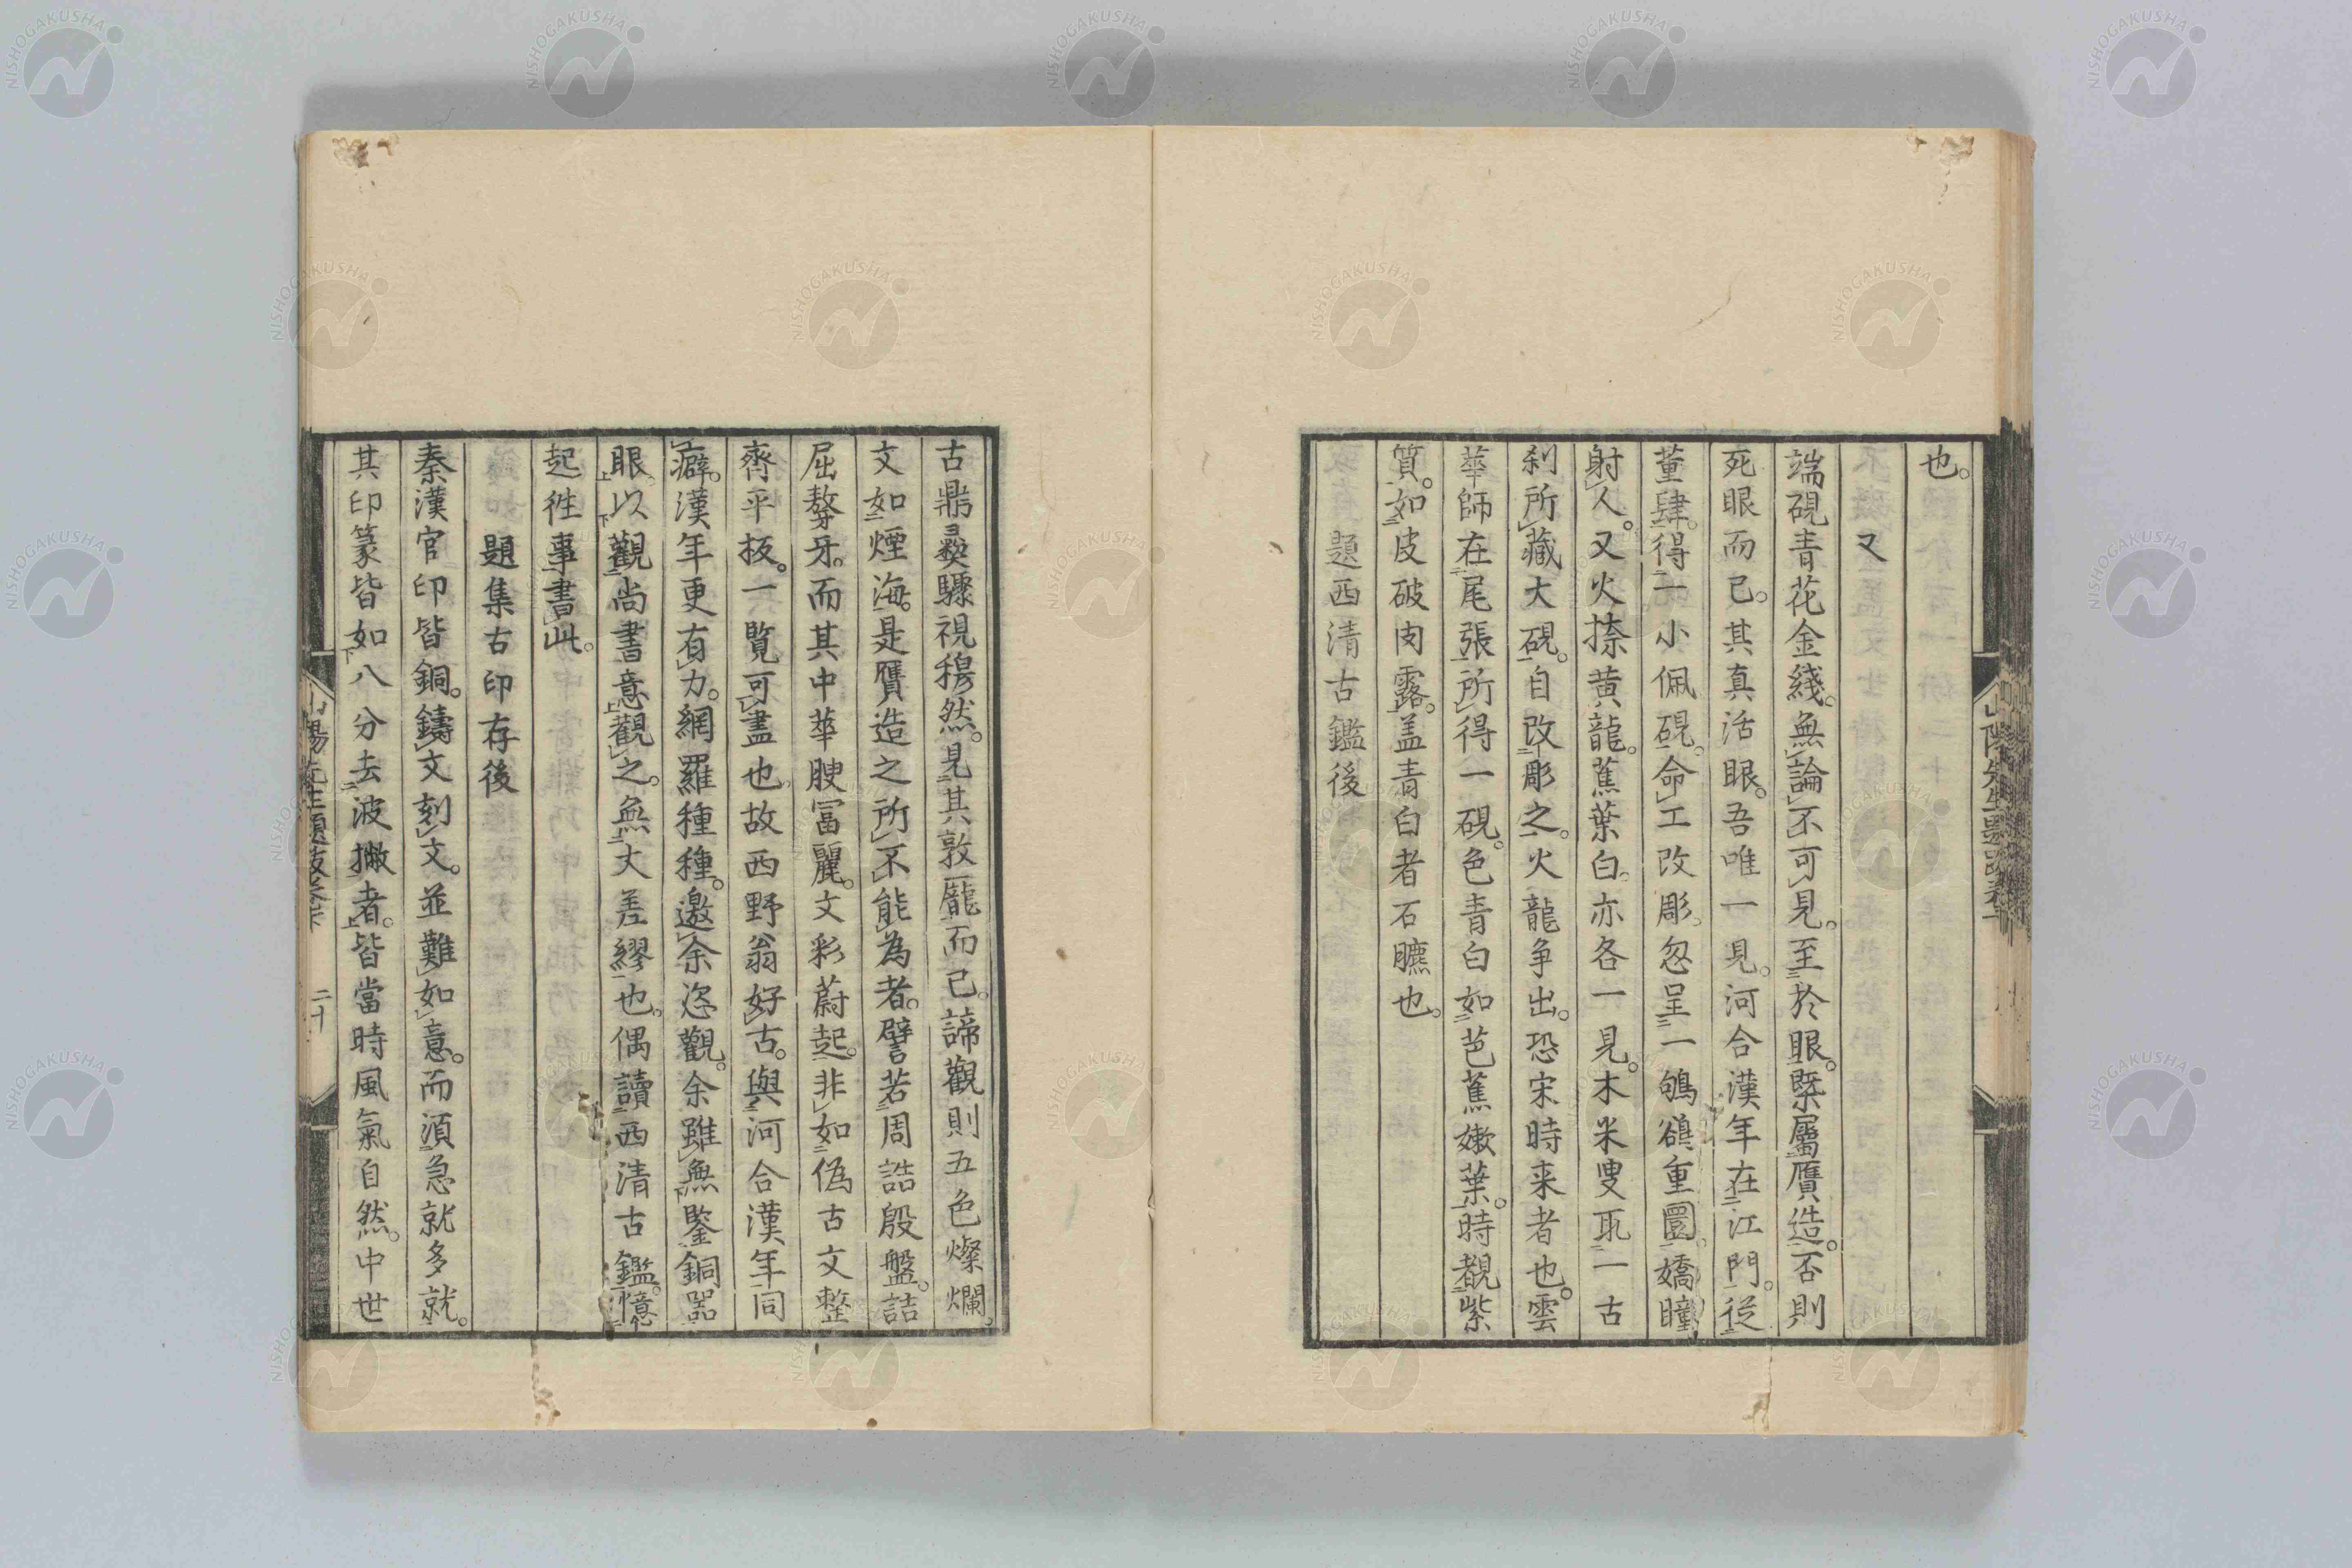 也。
又
端硯青花金綫。無論不可見。至於眼。槩屬贋造。否則
死眼而已。其真活眼。吾唯一見。河合漢年在江門。從
董肆。得一小佩硯。命工改彫。忽呈一鴝鵒重圜。嬌瞳
射人。又火捺黄龍。蕉葉白。亦各一見。木米叟瓦一古
刹所藏大硯。自改彫之。火龍争出。恐宋時来者也。雲
華師在尾張所得一硯。色青白如芭蕉嫩葉。時覩紫
質。如皮破肉露。盖青白者石膘也。
題西清古鑑後
古鼎彛驟視穆然。見其敦龎而已。諦觀則五色燦爛。
文如煙海。是贋造之所不能為者。譬若周誥殷盤。詰
屈聱牙。而其中華腴冨麗。文彩蔚起。非如偽古文整
齊平板。一覧可盡也。故西野翁好古。與河合漢年同
癖。漢年更有力。網羅種種。邀余恣觀。余雖無鑒銅噐
眼。以觀尚書意觀之。無大差繆也。偶讀西清古鑑。憶
起徃事書此。
題集古印存後
秦漢官印皆銅。鑄文刻文。並難如意。而湏急就多就。
其印篆皆如八分去波撇者。皆當時風氣自然。中世
NISHOGAKUSHA